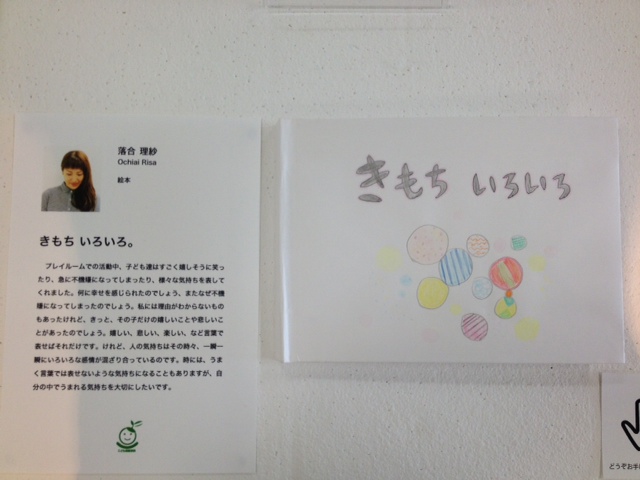 落合 理紗
Ochiai Risa
絵本
きもち いろいろ。
プレイルームでの活動中、子ども達はすごく嬉しそうに笑っ
たり、急に不機嫌になってしまったり、様々な気持ちを表して
くれました。何に幸せを感じられたのでしょう、またなぜ不機
嫌になってしまったのでしょう。私には理由がわからないもの
もあったけれど、きっと、その子だけの嬉しいことや悲しいこ
とがあったのでしょう。嬉しい、悲しい、楽しい、など言葉で
表せばそれだけです。けれど、人の気持ちはその時々、一瞬一
瞬にいろいろな感情が混ざり合っているのです。時には、うま
く言葉では表せないような気持ちになることもありますが、自
分の中でうまれる気持ちを大切にしたいです。
きもち いろいろ
どうぞお手に